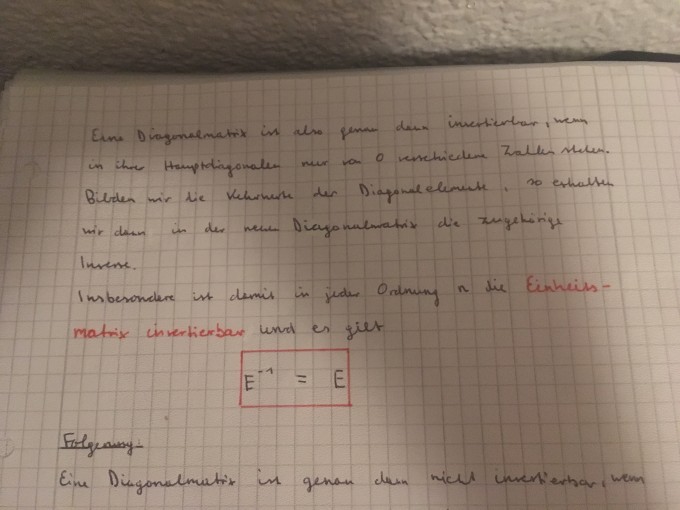 Eine Diagonalmatrix ist also genau dann invertierbar, wenn
in ihrer Hauptdiagonalen nur von 0 verschiedene Zahlen stehen.
Bilden wir die Kehrwerte der Diagonalelemente, so erhalten
wir dann in der neuen Diagonalmatrix die zugehörige
Inverse.
Insbesondere ist damit in jeder Ordnung n die Einheits-
matrix invertierbar und es gilt
E⁻¹ = E
Folgerung:
Eine Diagonalmatrix ist genau dann nicht invertierbar, wenn